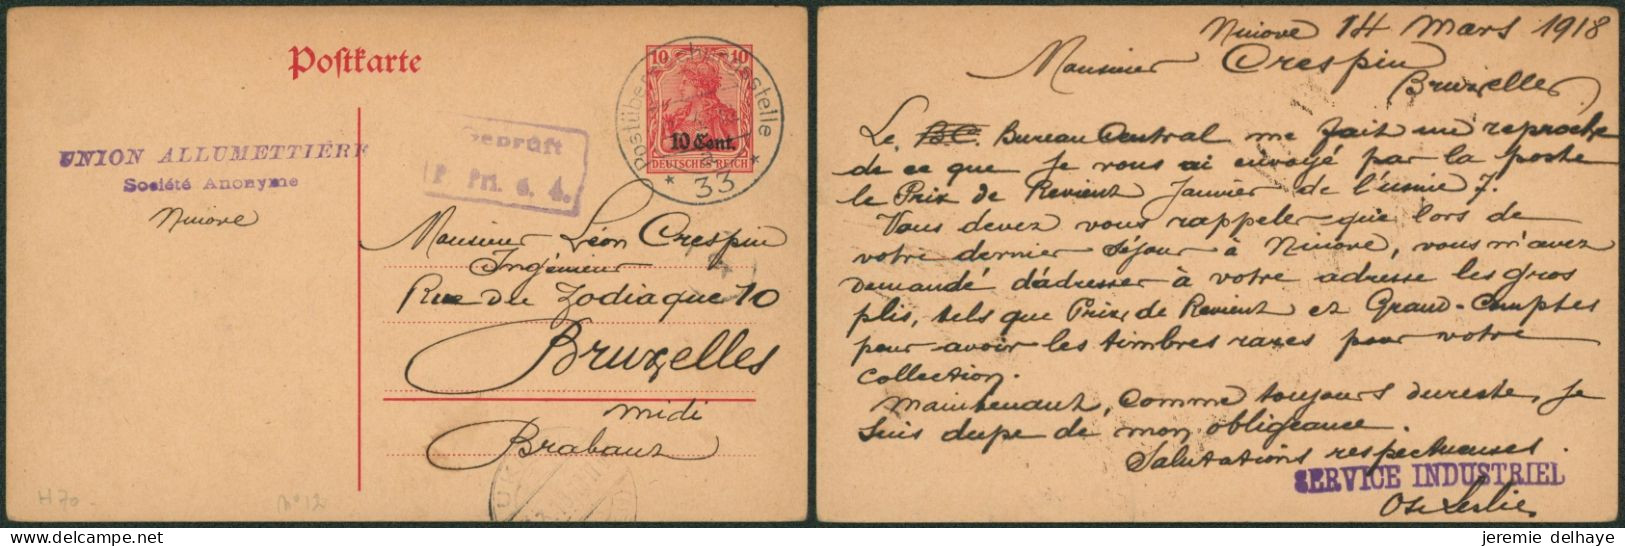 Postkarte
10 10
10 Cent.
DEUTSCHES REICH
33
UNION ALLUMETTIÈRE
Société Anonyme
Ninove
Geprüft
Monsieur Léon Crespin
Ingénieur
Rue du Zodiaque 10
Bruxelles
midi
Brabant
H 70
N° 12
Ninove 14 Mars 1918
Monsieur Crespin
Bruxelles
Le B.C. Bureau Central me fait un reproche
de ce que je vous ai envoyé par la poste
le Prix de Revient Janvier de l'usine 7.
Vous devez vous rappeler que lors de
votre dernier séjour à Ninove, vous m'avez
demandé d'adresser à votre adresse les gros
plis, tels que Prix de Revient et Grand-Comptes
pour avoir les timbres rares pour votre
collection.
Maintenant, comme toujours dureste, je
suis dupe de mon obligeance.
Salutations respectueuses.
SERVICE INDUSTRIEL
jeremie delhaye